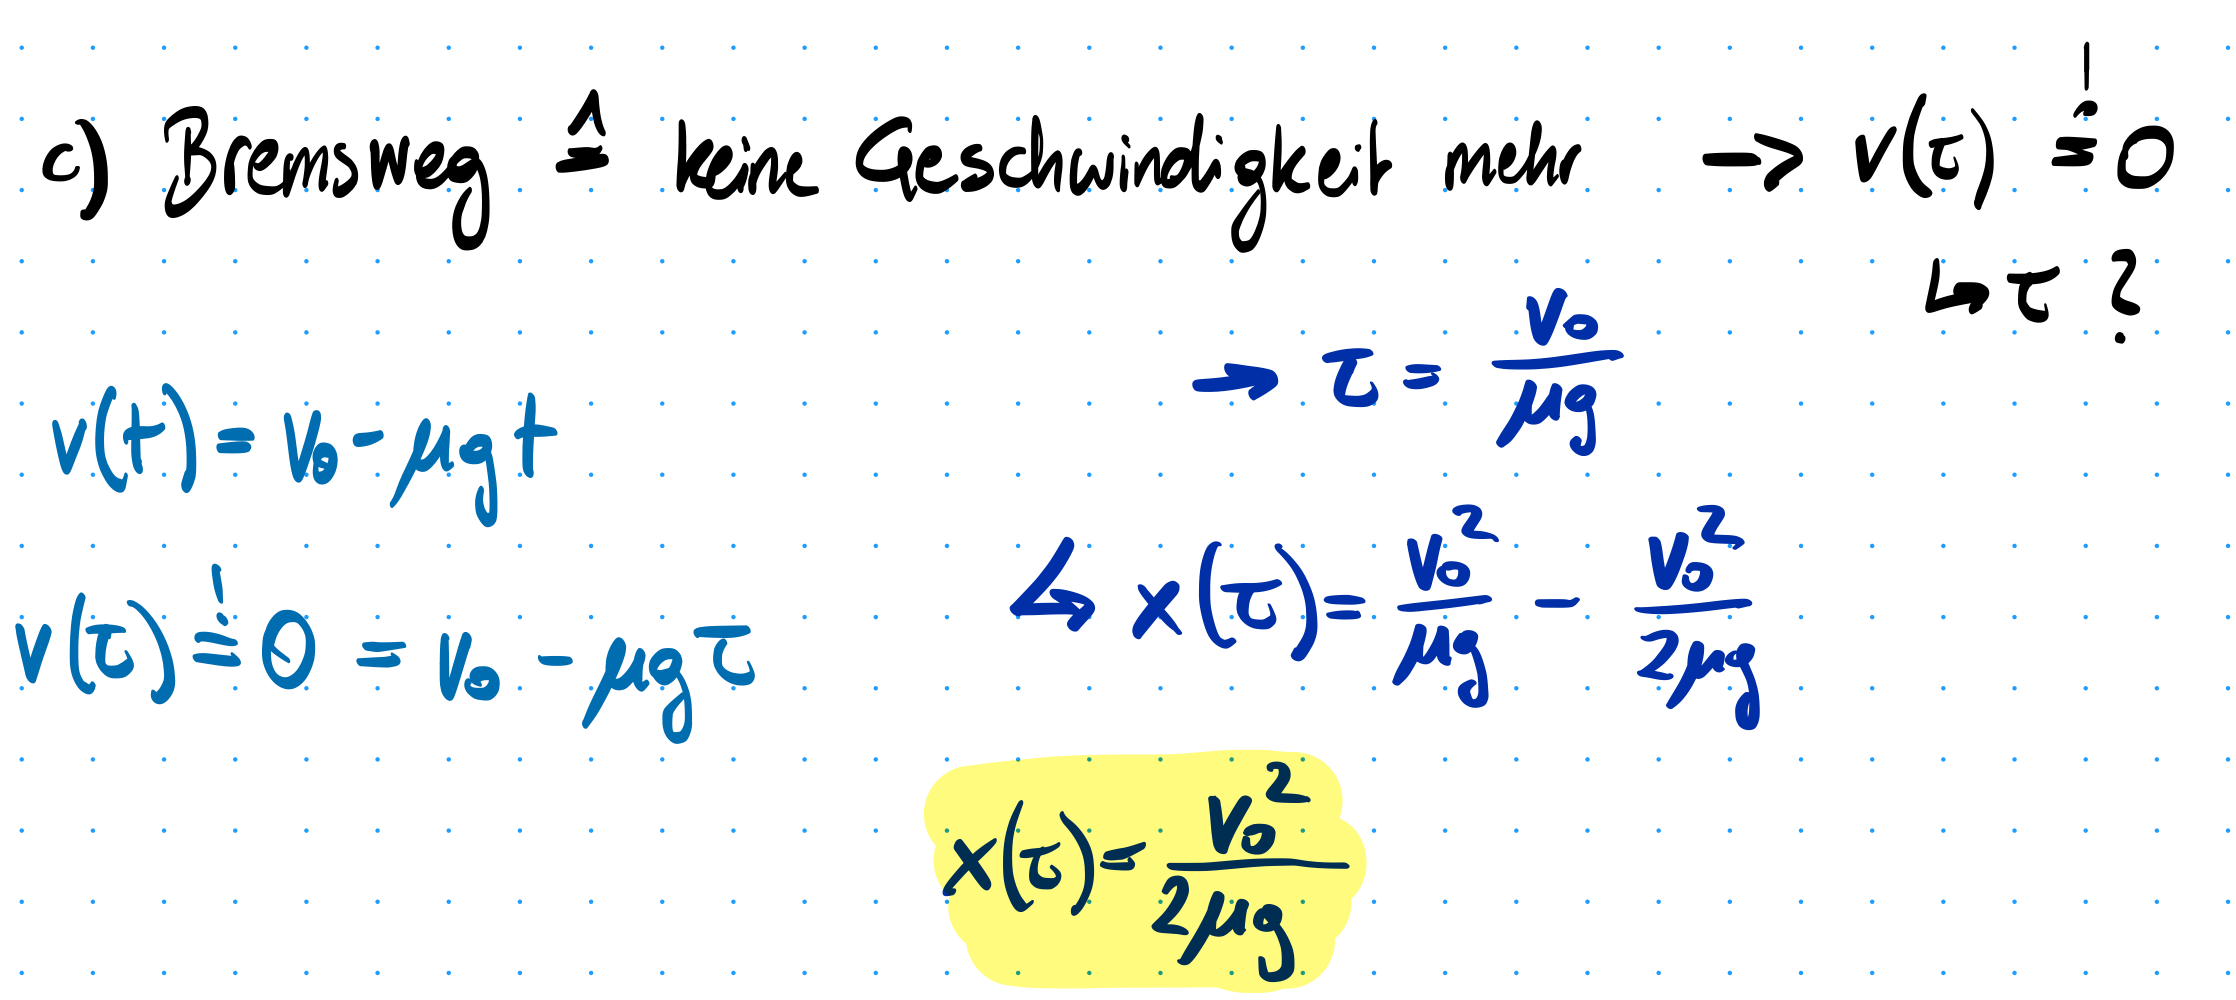 c) Bremsweg ≙ keine Geschwindigkeit mehr → v(τ) =! 0
↳ τ ?
→ τ = v₀/μg
v(t) = v₀ - μgt
v(τ) =! 0 = v₀ - μgτ
↳ x(τ) = v₀²/μg - v₀²/2μg
x(τ) = v₀²/2μg